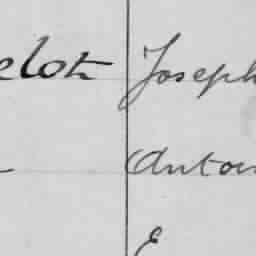 elot Joseph
Anton
E